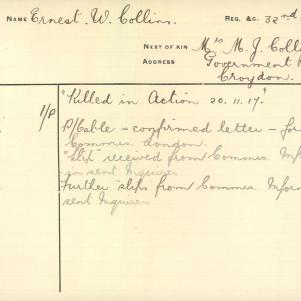 NAME Ernest. W. Collins. REG. &C. 32nd
NEXT OF KIN Mrs M. J. Colli
ADDRESS Government
Croydon.
"Killed in Action 20.11.17."
1/P P/Cable – confirmed letter – for
Commes. London.
"Slip" received from Commes. Inf
in sent Inquirer
Further slips from Commes. Infor
sent Inquirer